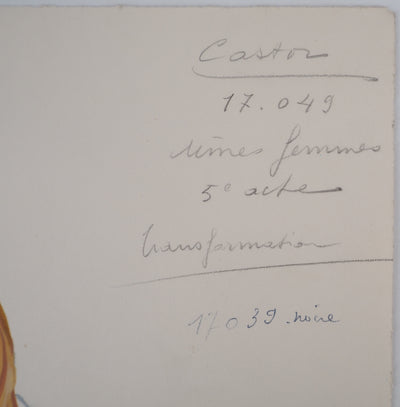 Castor
17.049
mimes femmes
5e acte
transformation
17039.noire